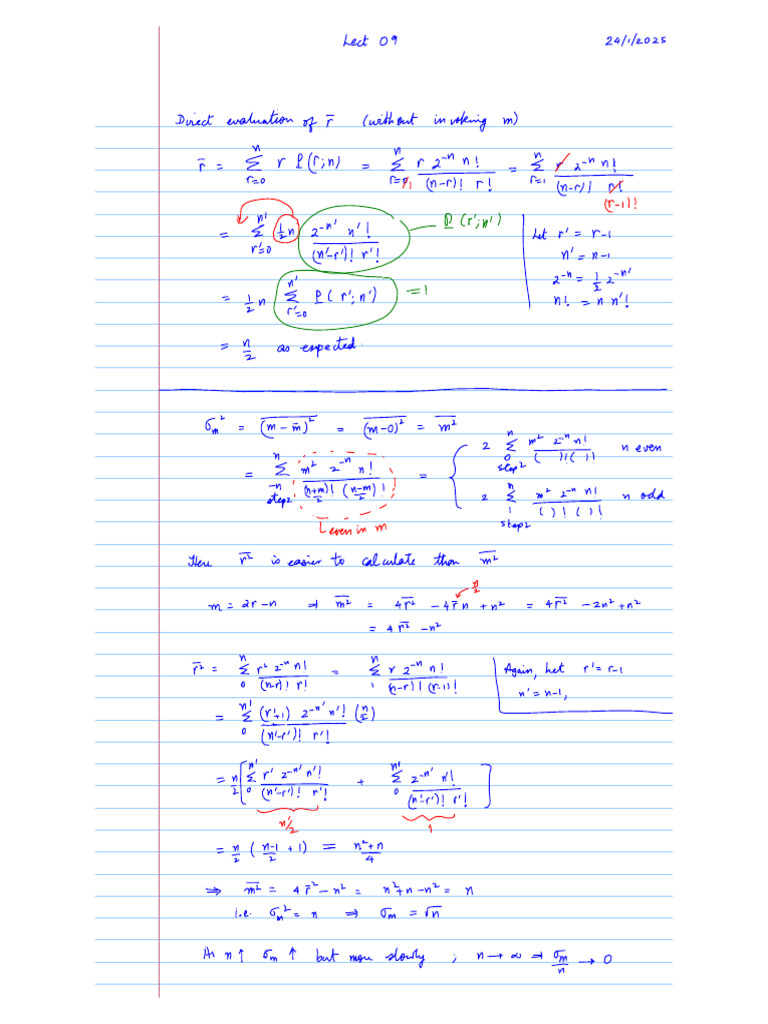 Lect 09 24/1/2025
Direct evaluation of r̄ (without invoking m)
r̄ = Σ_{r=0}^{n} r P(r;n) = Σ_{r=0,1}^{n} r 2^{-n} n! / (n-r)! r! = Σ_{r=1}^{n} r 2^{-n} n! / (n-r)! r! (r-1)!
= Σ_{r'=0}^{n'} ½n 2^{-n'} n'! / (n'-r')! r'! P(r';n')
Let r' = r-1
n' = n-1
2^{-n} = ½ 2^{-n'}
n! = n n'!
= ½ n Σ_{r'=0}^{n'} P(r';n') = 1
= n/2 as expected.
σ_m² = \overline{(m - m̄)²} = \overline{(m-0)²} = \overline{m²}
= Σ_{-n step2}^{n} m² 2^{-n} n! / ((n+m)/2)! ((n-m)/2)! = { 2 Σ_{0 step2}^{n} m² 2^{-n} n! / ( )! ( )! n even
2 Σ_{1 step2}^{n} m² 2^{-n} n! / ( )! ( )! n odd
even in m
Here \overline{r²} is easier to calculate than \overline{m²}
n/2
m = 2r-n ⇒ \overline{m²} = 4\overline{r²} - 4r̄n + n² = 4\overline{r²} - 2n² + n²
= 4\overline{r²} - n²
\overline{r²} = Σ_{0}^{n} r² 2^{-n} n! / (n-r)! r! = Σ_{1}^{n} r 2^{-n} n! / (n-r)! (r-1)!
Again, Let r' = r-1
n' = n-1,
= Σ_{0}^{n'} (r'+1) 2^{-n'} n'! / (n'-r')! r'! (n/2)
= n/2 [ Σ_{0}^{n'} r' 2^{-n'} n'! / (n'-r')! r'! + Σ_{0}^{n'} 2^{-n'} n'! / (n'-r')! r'! ]
n'/2 1
= n/2 ( (n-1)/2 + 1 ) = (n²+n)/4
⇒ \overline{m²} = 4\overline{r²} - n² = n²+n-n² = n
i.e. σ_m² = n ⇒ σ_m = √n
As n↑ σ_m ↑ but more slowly ; n → ∞ ⇒ σ_m/n → 0